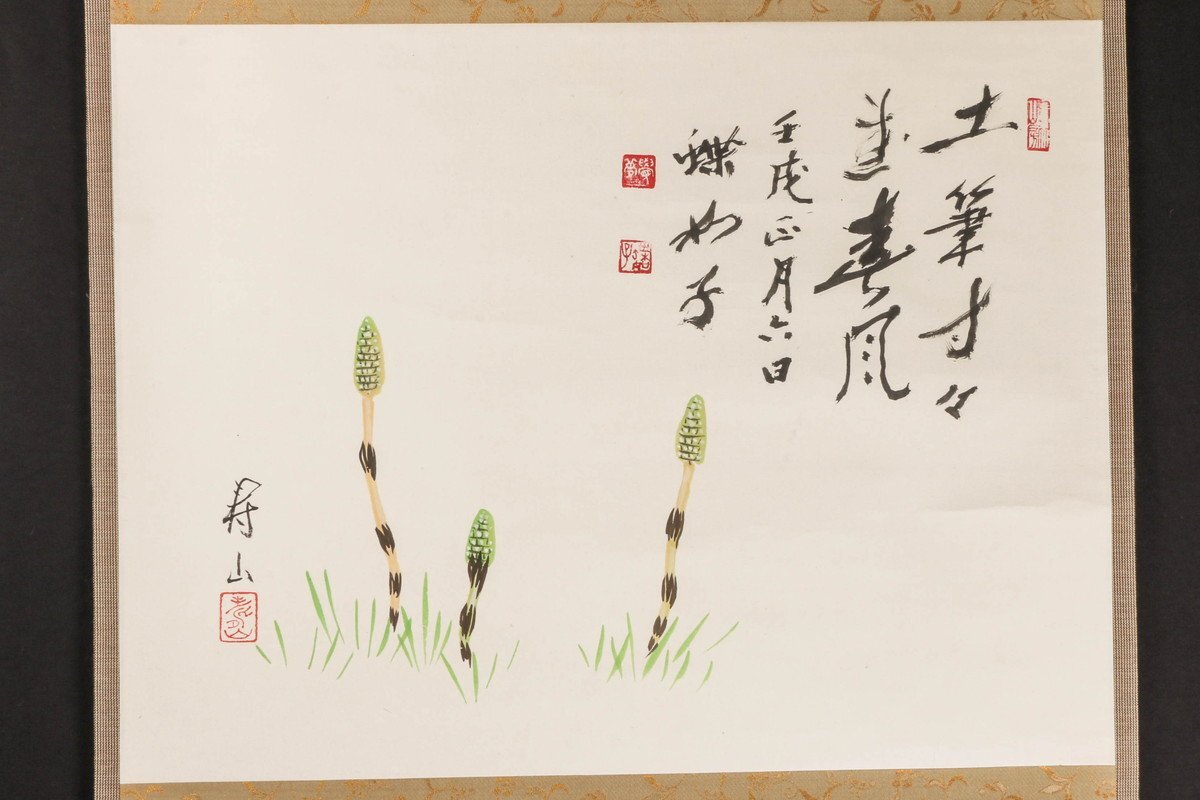 土筆寸々
春風
壬戌正月六日
蝶如子
寿山